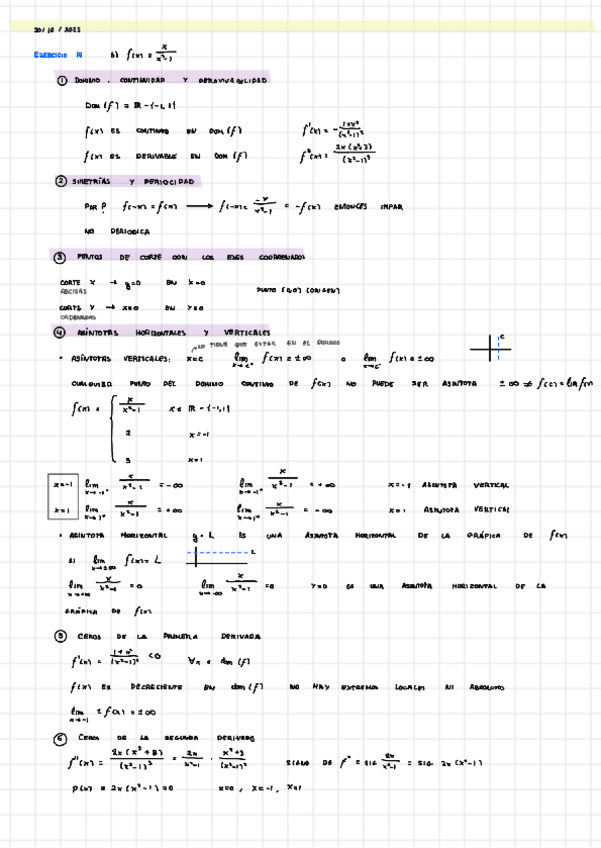 20/10/2025
EJERCICIO N b) f(x) = x/(x²-1)
① DOMINIO, CONTINUIDAD Y DERIVABILIDAD
DOM (f) = ℝ - {-1, 1}
f(x) ES CONTINUO EN DOM (f) f'(x) = - (1+x²)/(x²-1)²
f(x) ES DERIVABLE EN DOM (f) f''(x) = 2x(x²+3)/(x²-1)³
② SIMETRÍAS Y PERIOCIDAD
PAR? f(-x) = f(x) → f(-x) = -x/(x²-1) = -f(x) ENTONCES IMPAR
NO PERIODICA
③ PUNTOS DE CORTE CON LOS EJES COORDENADOS
CORTE X → y=0 EN x=0 PUNTO (0,0) (ORIGEN)
ABCISAS
CORTE Y → x=0 EN y=0
ORDENADAS
④ ASÍNTOTAS HORIZONTALES Y VERTICALES
NO TIENE QUE ESTAR EN EL DOMINIO
• ASÍNTOTAS VERTICALES: x=c lim x→c⁺ f(x) = ±∞ o lim x→c⁻ f(x) = ±∞ c
CUALQUIER PUNTO DEL DOMINIO CONTINUO DE f(x) NO PUEDE SER ASÍNTOTA ±∞ ≠ f(c) = lim f(x)
f(x) = { x/(x²-1) x ∈ ℝ - {-1,1}
2 x=-1
3 x=1
x=-1 lim x→-1⁻ x/(x²-1) = -∞ lim x→-1⁺ x/(x²-1) = +∞ x=-1 ASÍNTOTA VERTICAL
x=1 lim x→1⁺ x/(x²-1) = +∞ lim x→1⁻ x/(x²-1) = -∞ x=1 ASÍNTOTA VERTICAL
• ASÍNTOTA HORIZONTAL y=L ES UNA ASÍNTOTA HORIZONTAL DE LA GRÁFICA DE f(x)
SI lim x→±∞ f(x) = L L
lim x→+∞ x/(x²-1) = 0 lim x→-∞ x/(x²-1) = 0 y=0 ES UNA ASÍNTOTA HORIZONTAL DE LA
GRÁFICA DE f(x)
⑤ CEROS DE LA PRIMERA DERIVADA
f'(x) = (1+x²)/(x²-1)² <0 ∀x ∈ dom (f)
f(x) ES DECRECIENTE EN dom (f) NO HAY EXTREMOS LOCALES NI ABSOLUTO
lim x→-1 ± f(x) = ±∞
⑥ CEROS DE LA SEGUNDA DERIVADA
f''(x) = 2x(x²+3)/(x²-1)³ = 2x/(x²-1) · (x²+3)/(x²-1)² SIGNO DE f'' = SIG 2x/(x²-1) = SIG 2x(x²-1)
p(x) = 2x(x²-1) = 0 x=0, x=-1, x=1